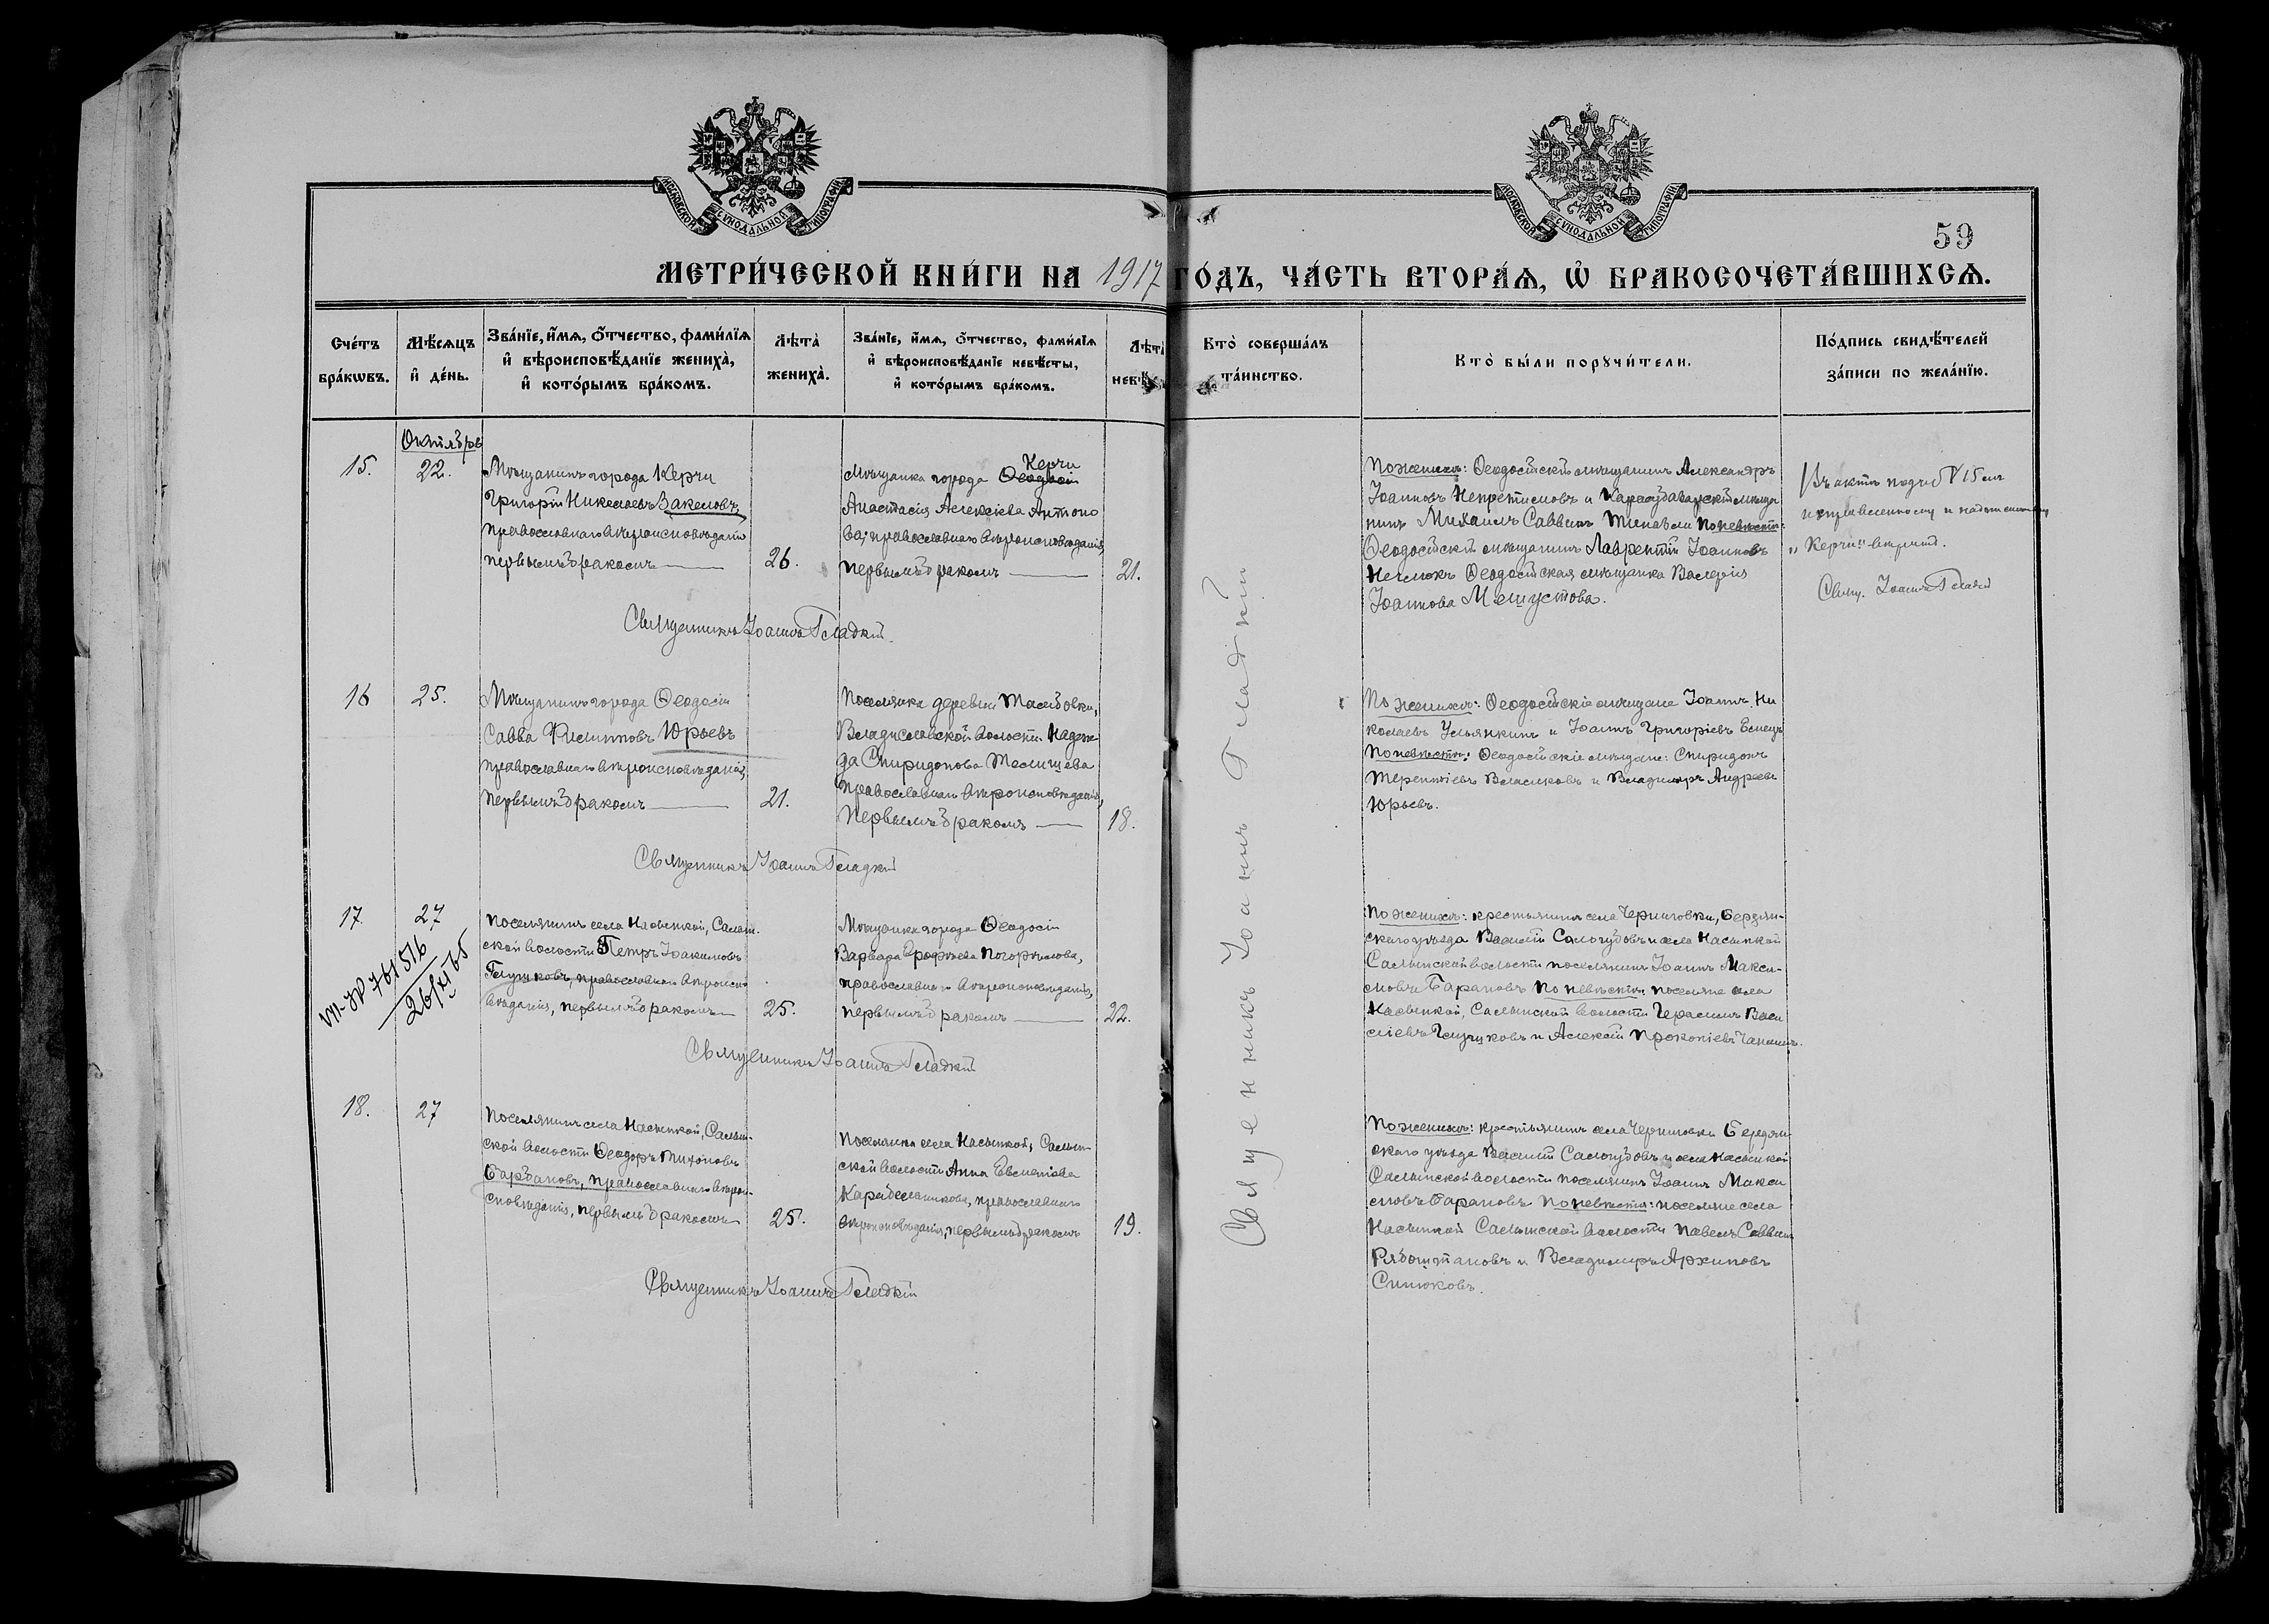 МОСКОВСКОЙ СѴНОДАЛЬНОЙ ТИПОГРАФІИ
МОСКОВСКОЙ СѴНОДАЛЬНОЙ ТИПОГРАФІИ
59
МЕТРИ́ЧЕСКОЙ КНИ́ГИ НА 1917 ГО́ДЪ, ЧА́СТЬ ВТОРА́Ѧ, Ѽ БРАКОСОЧЕТА́ВШИХСѦ.
Сче́тъ бра́кѡвъ.
Мѣ́сѧцъ и҆ де́нь.
Зва́нїе, и҆́мѧ, ѻ҆́тчество, фами́лїѧ и҆ вѣроисповѣ́данїе жениха̀, и҆ кото́рымъ бра́комъ.
Лѣта̀ жениха̀.
Зва́нїе, и҆́мѧ, ѻ҆́тчество, фами́лїѧ и҆ вѣроисповѣ́данїе невѣ́сты, и҆ кото́рымъ бра́комъ.
Лѣта̀ невѣ́
Кто̀ соверша́лъ та́инство.
Кто̀ бы́ли порꙋчи́тели.
По́дпись свидѣ́телей за́писи по жела́нїю.
Октябрь
15.
22.
Мѣщанинъ города Керчи
Григорій Николаевъ Закеловъ,
православнаго вѣроисповѣданія
первымъ бракомъ
26.
Керчи
Мѣщанка города Ѳеодосіи
Анастасія Алексіева Антоно
ва, православнаго вѣроисповѣданія,
первымъ бракомъ
21.
По женихѣ: Ѳеодосійскій мѣщанинъ Александръ
Іоанновъ и Карасубазарскій мѣща
нинъ Михаилъ Саввинъ По невѣстѣ:
Ѳеодосійскій мѣщанинъ Лаврентій Іоанновъ
Ѳеодосійская мѣщанка Валерія
Іоаннова
Въ актѣ подъ № 15 мъ
исправленному и надписанному
„Керчи" вѣрить.
Свящ. Іоаннъ Гладкій
Священникъ Іоаннъ Гладкій.
16
25.
Мѣщанинъ города Ѳеодосіи
Савва Филипповъ Юрьевъ
православнаго вѣроисповѣданія,
первымъ бракомъ
21.
Поселянка деревни
Владиславской волости Надеж-
да Спиридонова
православнаго вѣроисповѣданія,
первымъ бракомъ
18.
По женихѣ: Ѳеодосійскіе мѣщане Іоаннъ Ни
колаевъ Ульянкинъ и Іоаннъ Григоріевъ Емецъ
По невѣстѣ: Ѳеодосійскіе мѣщане: Спиридонъ
Терентіевъ Власиковъ и Владиміръ Андреевъ
Юрьевъ.
Священникъ Іоаннъ Гладкій
17
27
VII-ЭР 761516
26/XI 65
Поселянинъ села Насыпкой, Салын-
ской волости Петръ Іоакимовъ
Глушковъ, православнаго вѣроиспо
вѣданія, первымъ бракомъ
25.
Мѣщанка города Ѳеодосіи
Варвара Ерофѣева Погорѣлова,
православнаго вѣроисповѣданія,
первымъ бракомъ
22.
По женихѣ: крестьянинъ села Черниговки, Бердян-
скаго уѣзда Василій Самогубовъ и села Насыпкой
Салынской волости поселянинъ Іоаннъ Макси-
мовъ Барановъ По невѣстѣ: поселяне села
Насыпкой, Салынской волости Герасимъ Васи
ліевъ Глушковъ и Алексій Прокопіевъ
Священникъ Іоаннъ Гладкій
18.
27
Поселянинъ села Насыпкой, Салын-
ской волости Ѳеодоръ Тихоновъ
православнаго вѣрои-
сповѣданія, первымъ бракомъ
25.
Поселянка села Насыпкой, Салын-
ской волости Анна
православнаго
вѣроисповѣданія, первымъ бракомъ
19.
По женихѣ: крестьянинъ села Черниговки Бердян-
скаго уѣзда Василій Самогубовъ и села Насыпкой
Салынской волости поселянинъ Іоаннъ Макси
мовъ Барановъ По невѣстѣ: поселяне села
Насыпкой Салынской волости Павелъ Саввинъ
Рябоштановъ и Владиміръ Архиповъ
Синюковъ.
Священникъ Іоаннъ Гладкій
Священникъ Іоаннъ Гладкій